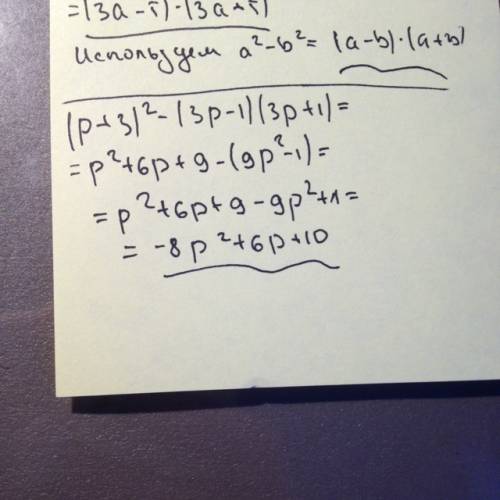 =(3a-5)·(3a+5)
Используем a²-b²=(a-b)·(a+b)
(p+3)²-(3p-1)(3p+1)=
=p²+6p+9-(9p²-1)=
=p²+6p+9-9p²+1=
=-8p²+6p+10